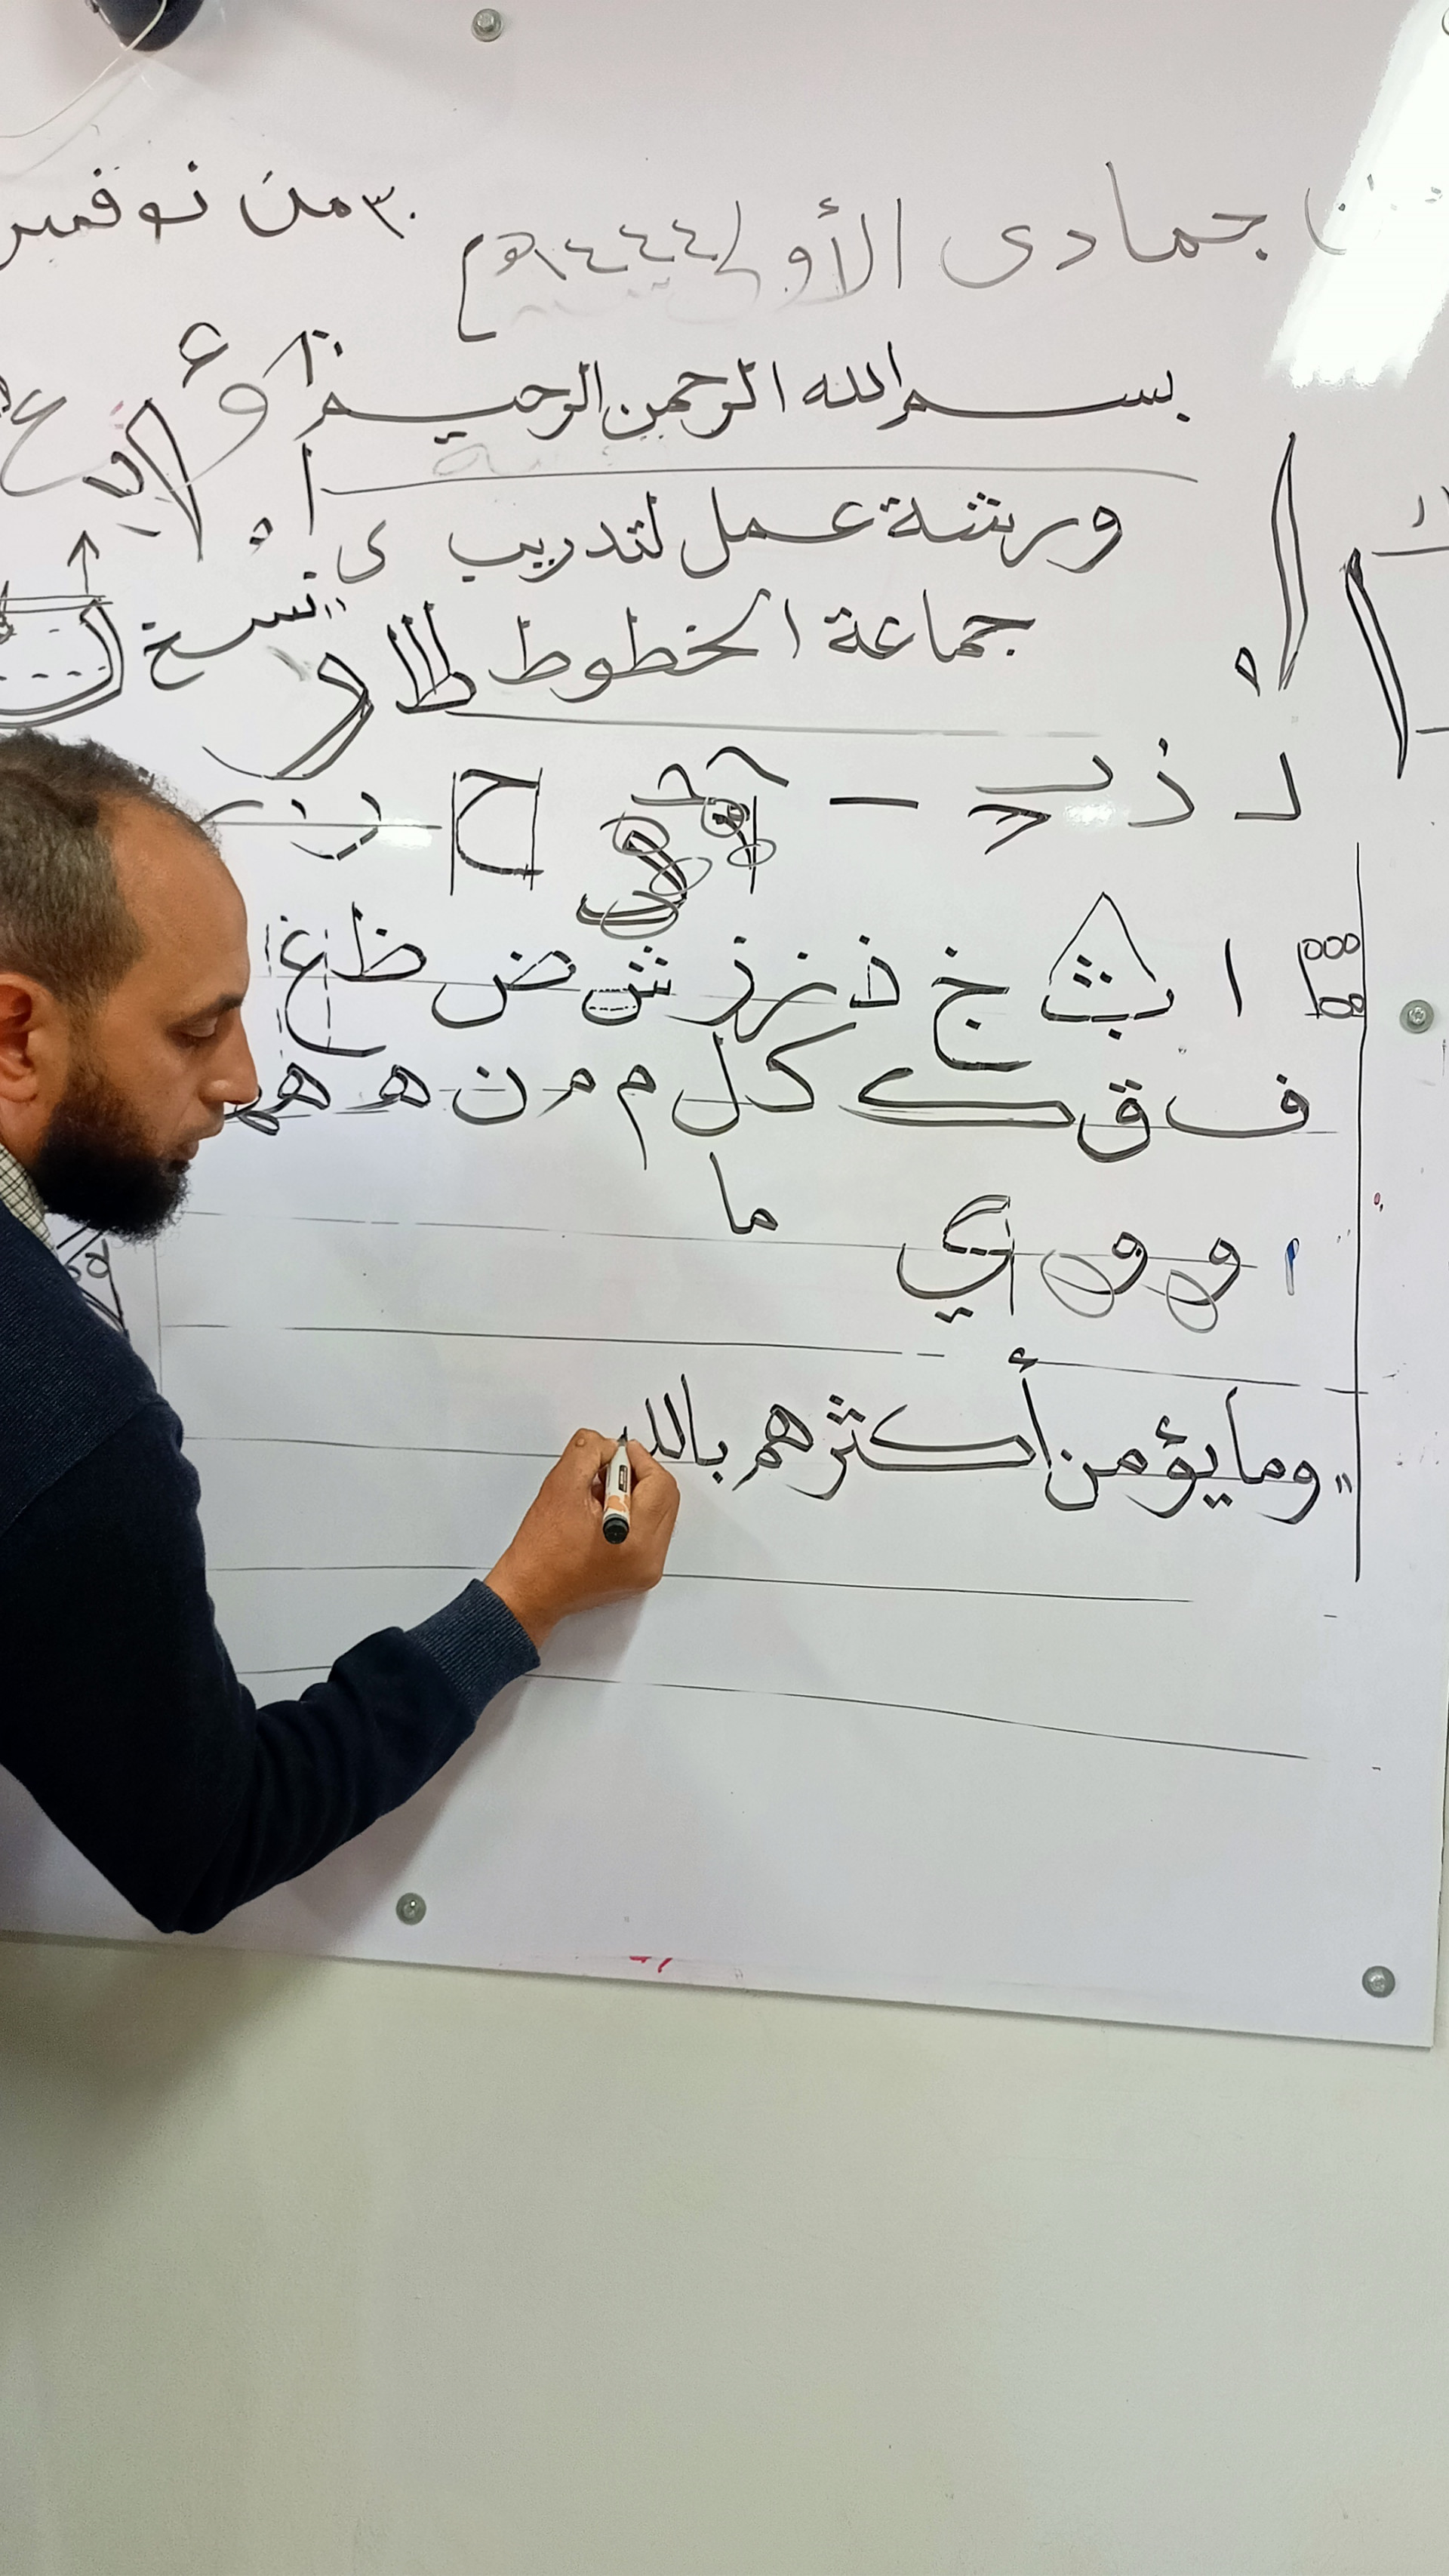 جمادى الأولى ١٤٤٤هـ
٣٠ من نوفمبر
بسم الله الرحمن الرحيم
ورشة عمل لتدريب
جماعة الخطوط
نسخ
د ذ
ح
ا ث خ ذ ز ز ش ض ظ غ
ف ق ك ك ل م م ن ه ه
و و ي ما
" وما يؤمن أكثرهم بالله